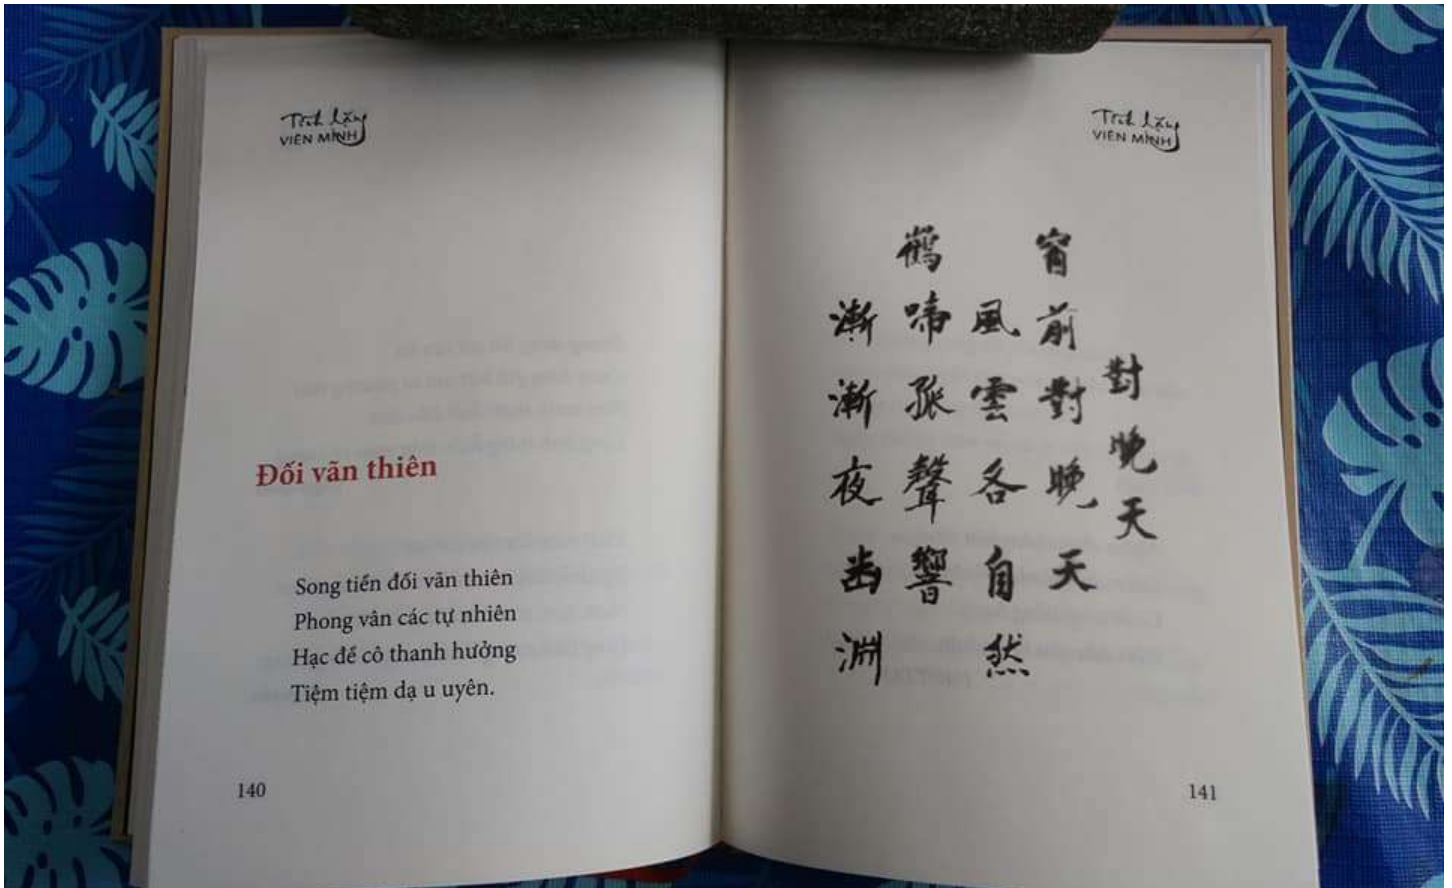 Tĩnh lặng
VIÊN MINH
Đối vãn thiên
Song tiến đối vãn thiên
Phong vân các tự nhiên
Hạc đề cô thanh hưởng
Tiệm tiệm dạ u uyên.
140
Tĩnh lặng
VIÊN MINH
對晚天
窗前對晚天
風雲各自然
鶴啼孤聲響
漸漸夜幽淵
141